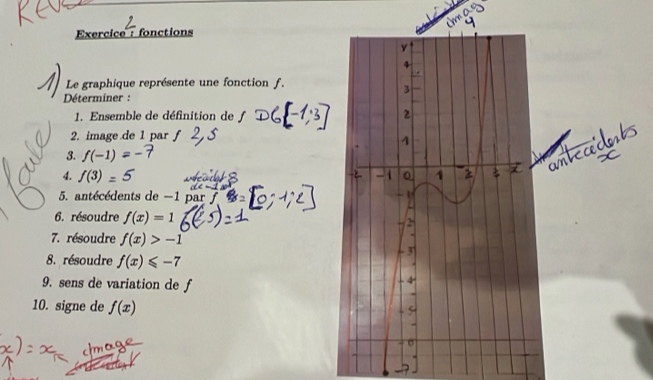 Exercice 2 : fonctions
1)
Le graphique représente une fonction f.
Déterminer :
1. Ensemble de définition de f Df[-1;3]
2. image de 1 par f 2,5
3. f(-1) = -7
4. f(3) = 5
5. antécédents de −1 par f = [0;1;2]
6. résoudre f(x) = 1 f(2,5)=1
7. résoudre f(x) > −1
8. résoudre f(x) ⩽ −7
9. sens de variation de f
10. signe de f(x)
x) = x image
image
y
antécédents
x
y
4
3
2
1
-2 -1 0 1 2 3 x